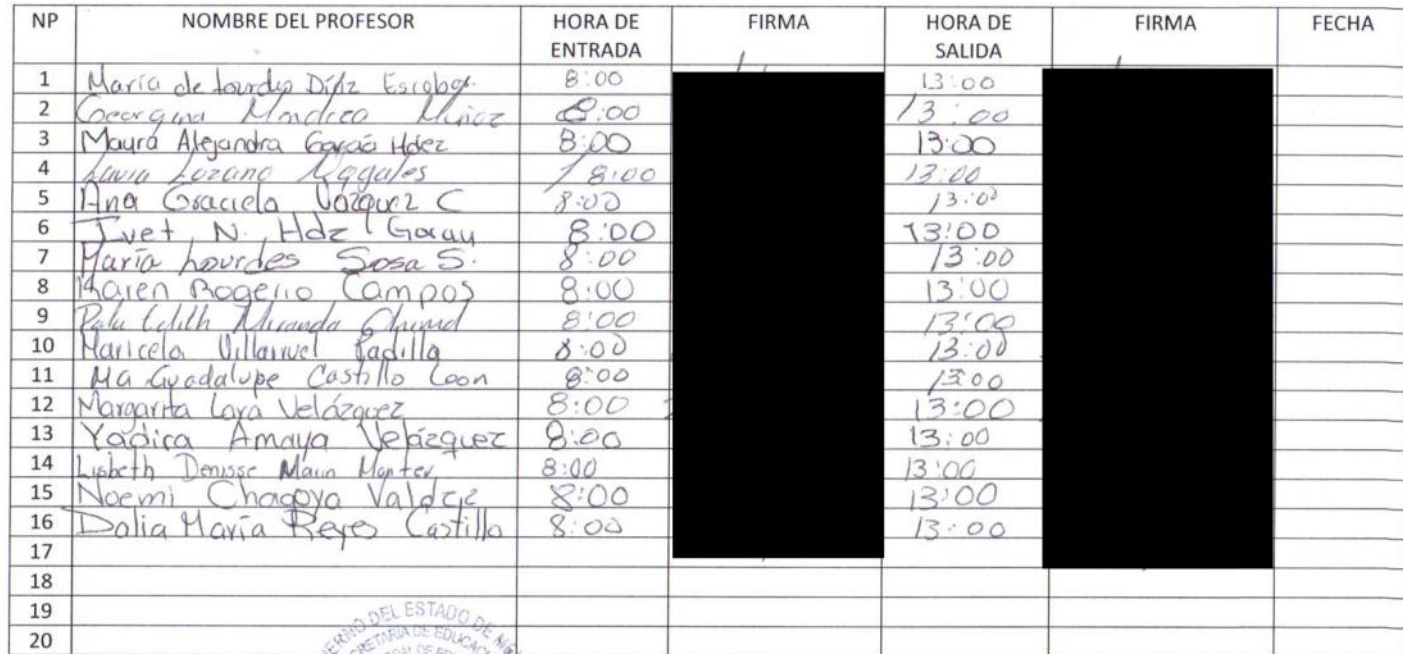 NP NOMBRE DEL PROFESOR HORA DE ENTRADA FIRMA HORA DE SALIDA FIRMA FECHA
1 María de Lourdes Díaz Escobar. 8:00 13:00
2 Georgina Mendoza Muñoz 8:00 13:00
3 Mayra Alejandra García Hdez 8:00 13:00
4 Lozano 8:00 13:00
5 Ana Graciela Vázquez C 8:00 13:00
6 Ivet N. Hdz Garay 8:00 13:00
7 María Lourdes Sosa S. 8:00 13:00
8 Karen Rogerio Campos 8:00 13:00
9 Miranda 8:00 13:00
10 Maricela Villarruel Padilla 8:00 13:00
11 Ma Guadalupe Castillo Leon 8:00 13:00
12 Margarita Lara Velázquez 8:00 13:00
13 Yadira Amaya Velázquez 8:00 13:00
14 Lisbeth Denisse 8:00 13:00
15 Noemi Chagoya Valdez 8:00 13:00
16 Dalia María Reyes Castillo 8:00 13:00
17
18
19
20
DEL ESTADO DE